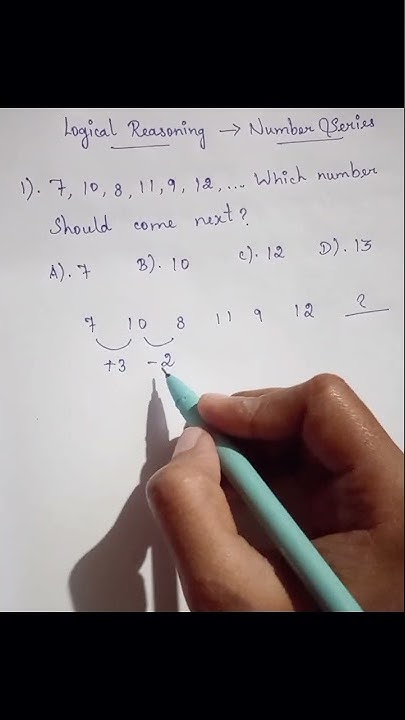 Logical Reasoning → Number Series
1). 7, 10, 8, 11, 9, 12, .... Which number
should come next?
A). 7 B). 10 C). 12 D). 13
7 10 8 11 9 12 ?
+3 -2